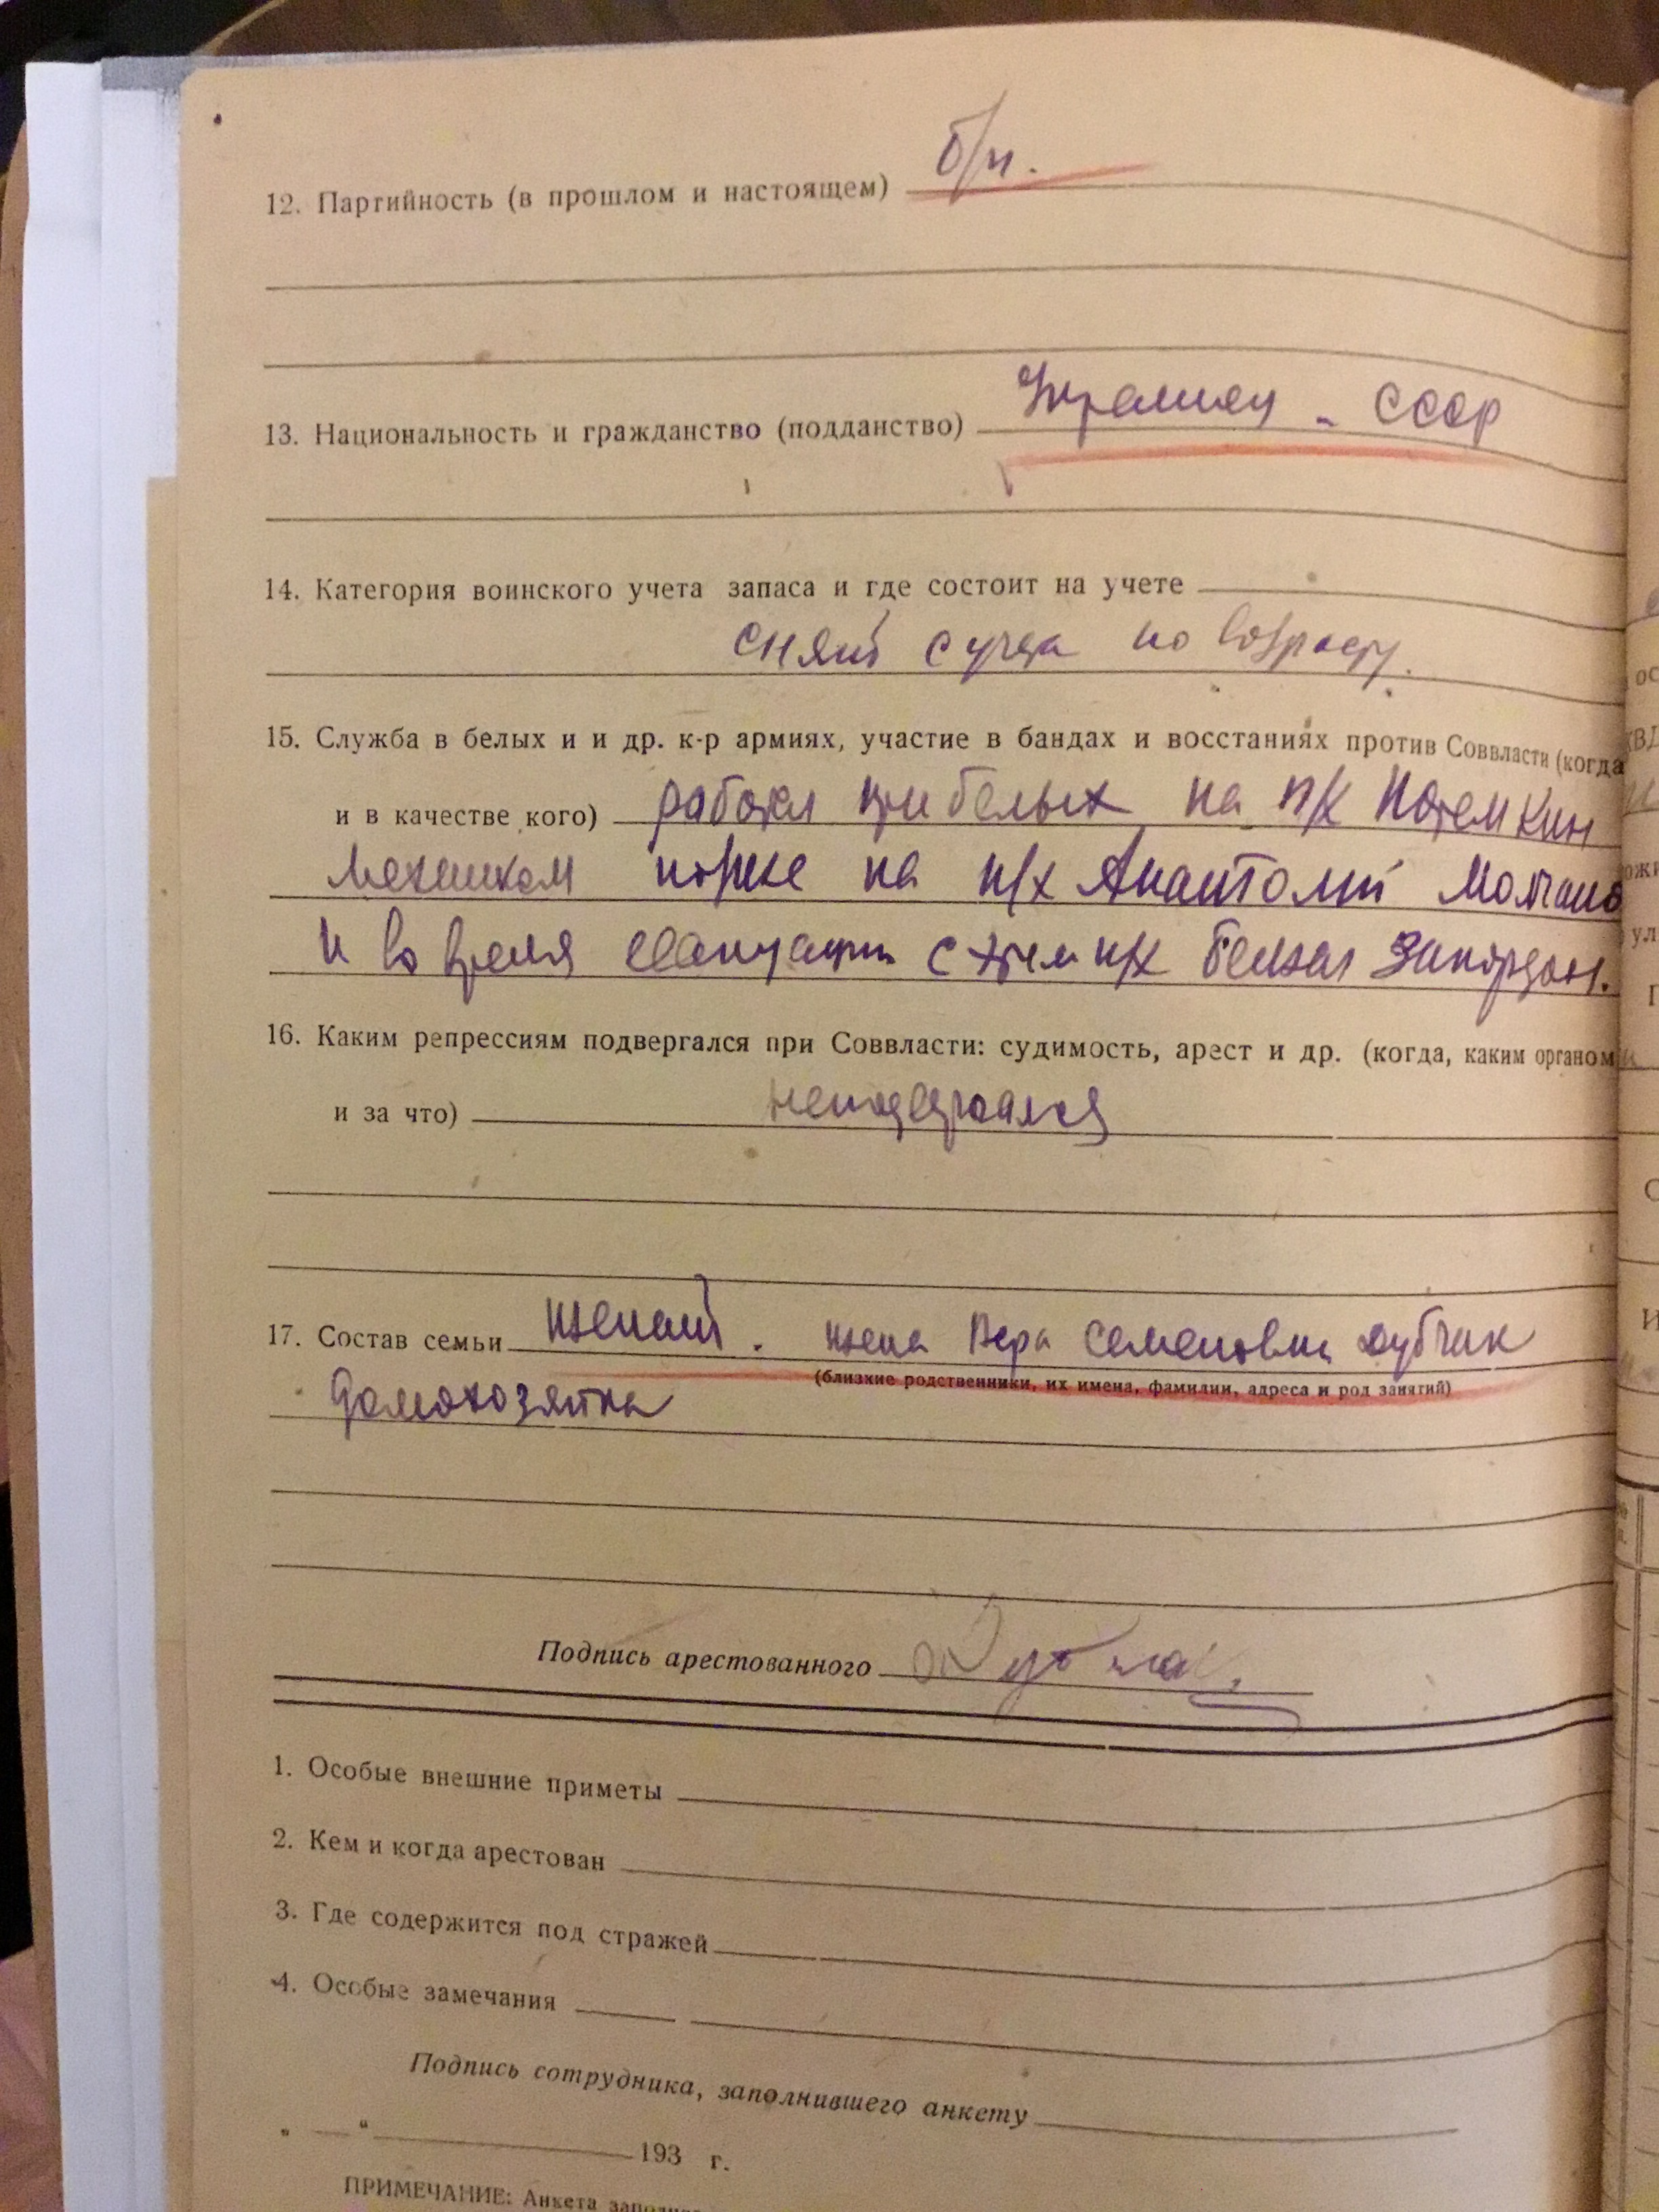 б/п.
12. Партийность (в прошлом и настоящем)
Украинец - СССР
13. Национальность и гражданство (подданство)
14. Категория воинского учета запаса и где состоит на учете
снят с учета по возрасту.
15. Служба в белых и и др. к-р армиях, участие в бандах и восстаниях против Соввласти (когда
и в качестве кого) работал при белых на п/х Потемкин
механиком позже на п/х Анатолий Молчано
и во время евакуации с этем п/х бежал
16. Каким репрессиям подвергался при Соввласти: судимость, арест и др. (когда, каким органом
и за что) неподвергался
17. Состав семьи женат. жена Вера Семеновна Дубчак
(близкие родственники, их имена, фамилии, адреса и род занятий)
домохозяйка
Подпись арестованного Дубчак
1. Особые внешние приметы
2. Кем и когда арестован
3. Где содержится под стражей
4. Особые замечания
Подпись сотрудника, заполнившего анкету
„ “ 193 г.
ПРИМЕЧАНИЕ: Анкета